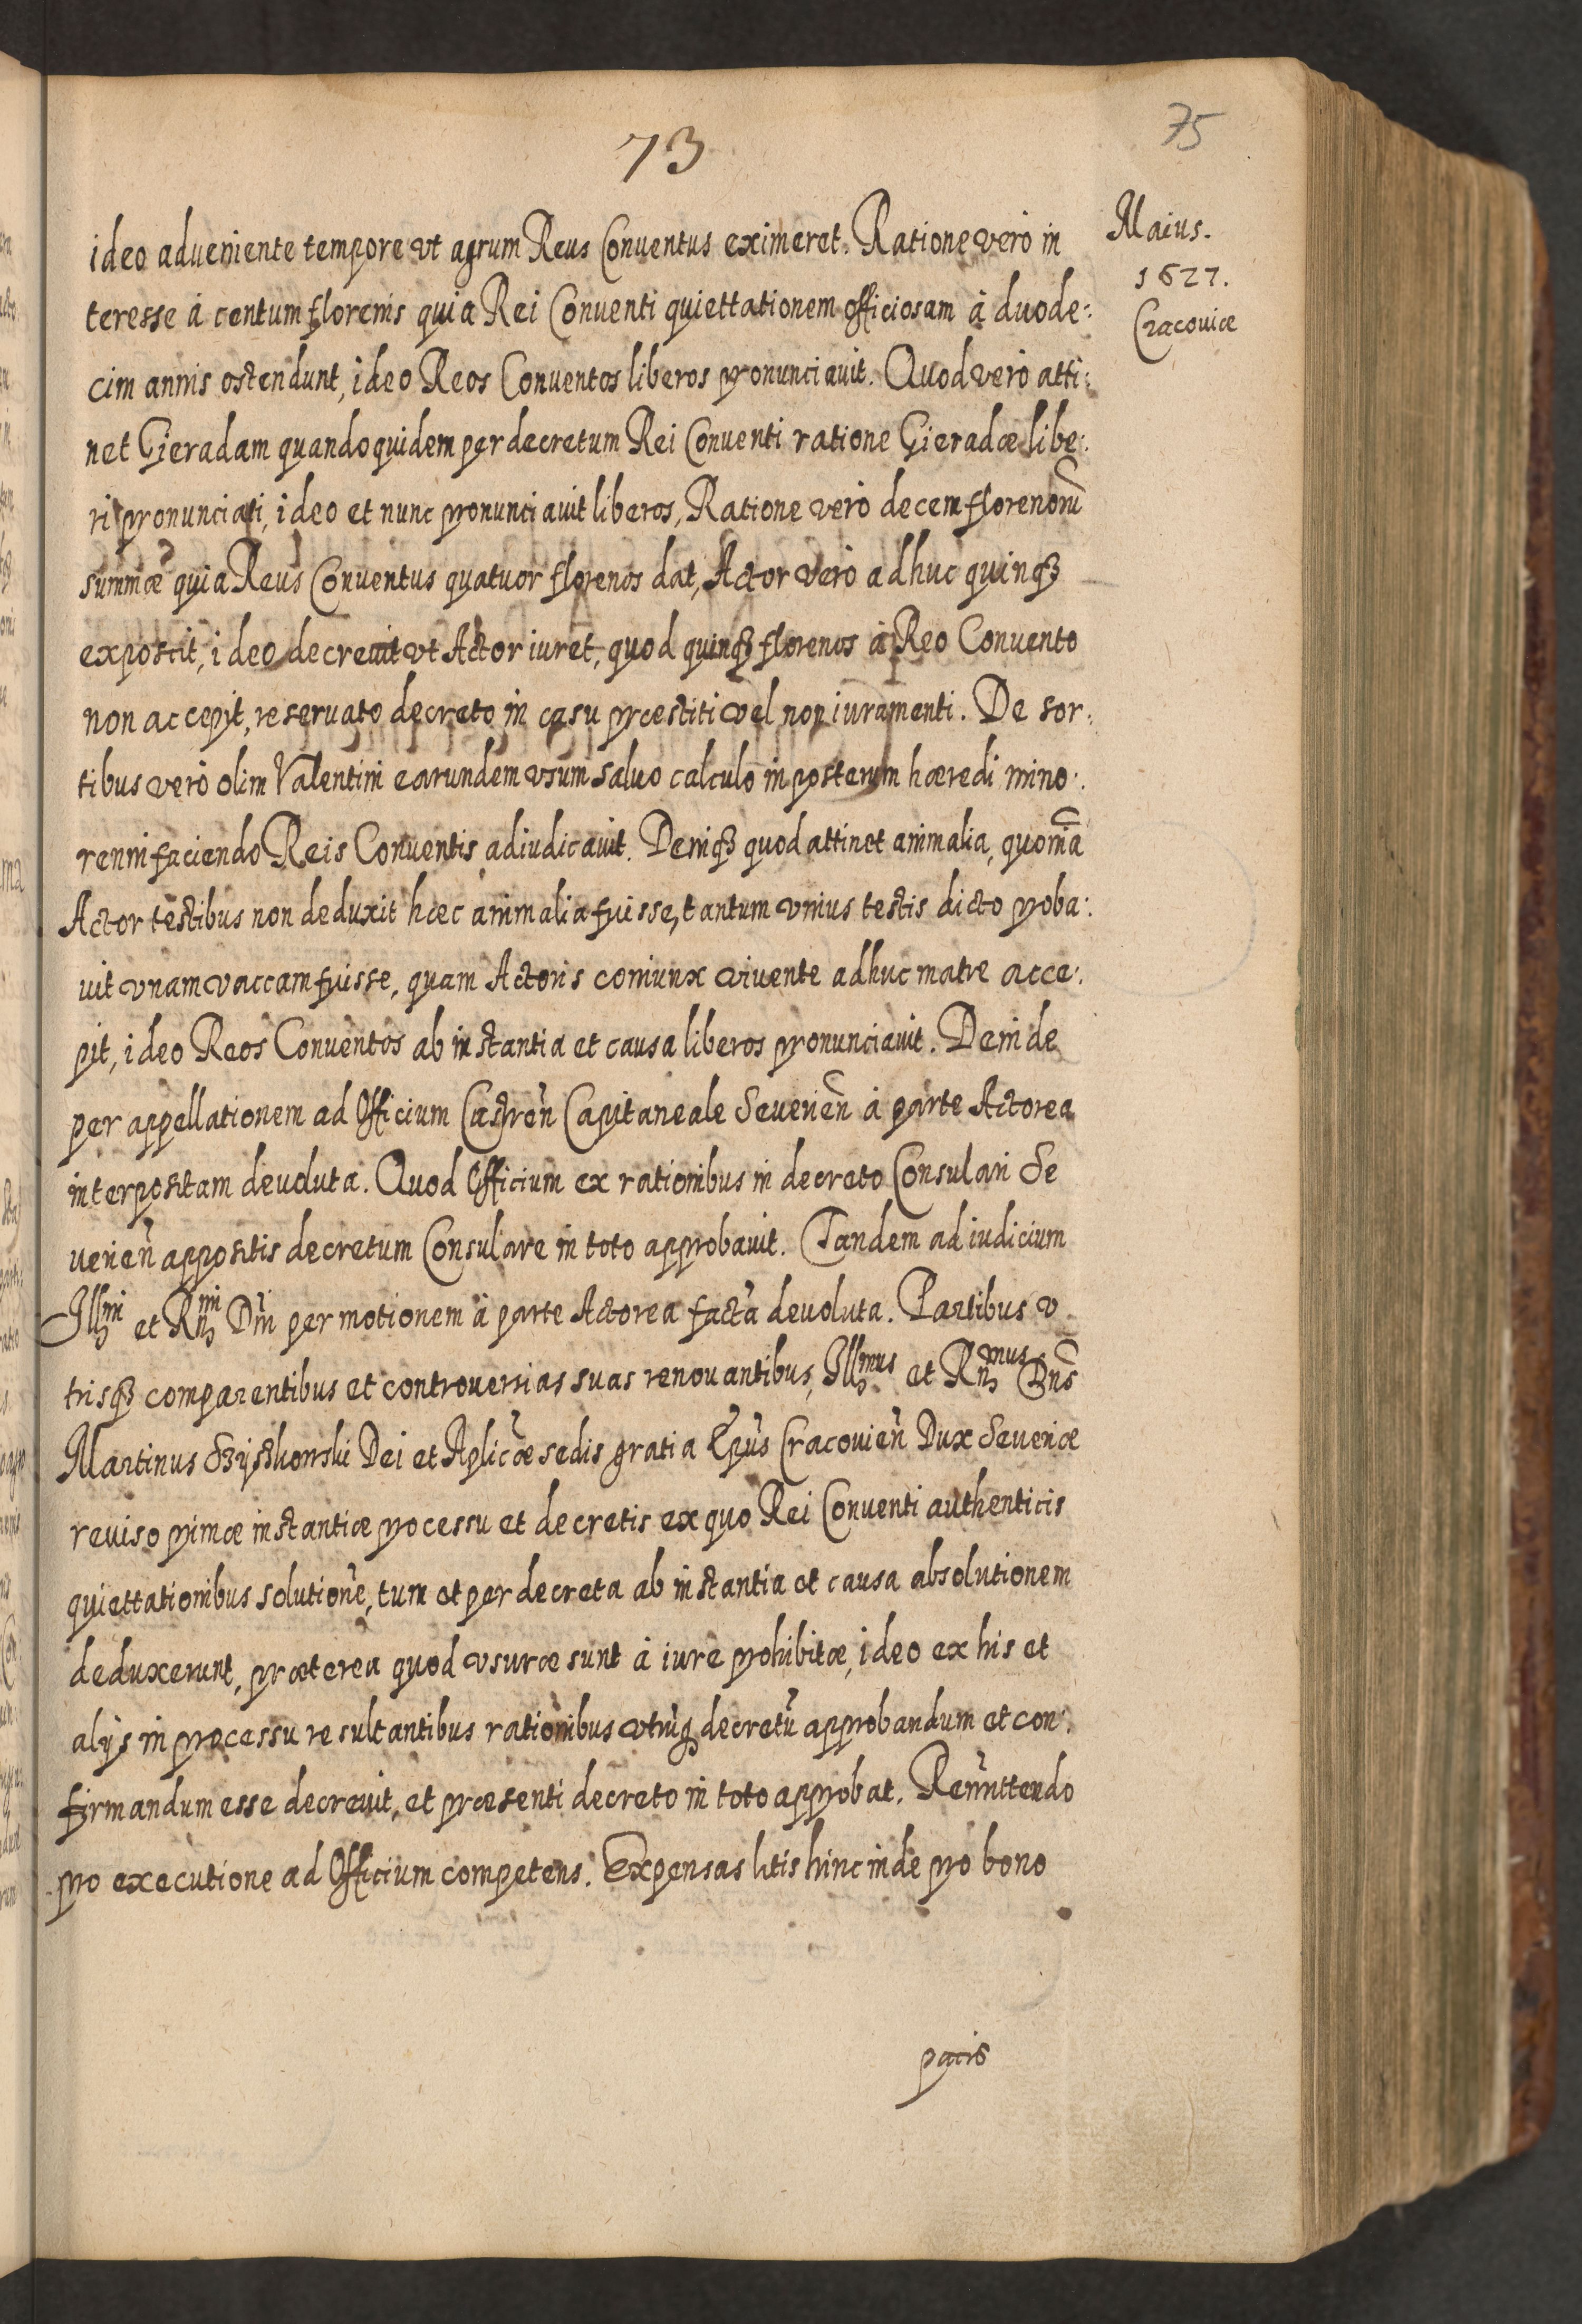 73
75
Maius.
1627.
Cracouiæ
ideo adueniente tempore vt agrum Reus Conuentus eximeret. Ratione verò in
teresse à centum florenis quia Rei Conuenti quiettationem officiosam à duode:
cim annis ostendunt, ideo Reos Conuentos liberos pronunciauit. Quod verò atti:
net Gieradam quandoquidem per decretum Rei Conuenti ratione Gieradæ libe:
ri pronunciati, ideo et nunc pronunciauit liberos, Ratione verò decem florenorũ
summæ quia Reus Conuentus quatuor florenos dat, Actor verò adhuc quinqȝ
exposcit, ideo decreuit vt Actor iuret, quod quinqȝ florenos à Reo Conuento
non accepit, reseruato decreto in casu præstiti vel non iuramenti. De sor:
tibus verò olim Valentini earundem vsum saluo calculo in posterum hæredi mino:
renni faciendo Reis Conuentis adiudicauit. Deniqȝ quod attinet animalia, quoniã
Actor testibus non deduxit hæc animalia fuisse, tantum vnius testis dicto proba:
uit vnam vaccam fuisse, quam Actoris coniunx viuente adhuc matre acce:
pit, ideo Reos Conuentos ab instantia et causa liberos pronunciauit. Deinde
per appellationem ad Officium Castreñ Capitaneale Seuerieñ à parte Actorea
interpositam deuoluta. Quod Officium ex rationibus in decreto Consulari Se
uerieñ appositis decretum Consulare in toto approbauit. Tandem ad iudicium
Illmi et Rmi Dni per motionem à parte Actorea factã deuoluta. Partibus v
trisqȝ comparentibus et controuersias suas renouantibus, Illmus et Rnmus Dns
Martinus Szyszkowski Dei et Aplicæ sedis gratia Epus Cracouieñ Dux Seueriæ
reuiso primæ instantiæ processu et decretis ex quo Rei Conuenti authenticis
quiettationibus solutionẽ, tum et per decreta ab instantia et causa absolutionem
deduxerunt, præterea quod vsuræ sunt à iure prohibitæ, ideo ex his et
alijs in processu resultantibus rationibus vtrũqȝ decretũ approbandum et con:
firmandum esse decreuit, et præsenti decreto in toto approbat. Remittendo
pro executione ad Officium competens. Expensas litis hinc inde pro bono
pacis